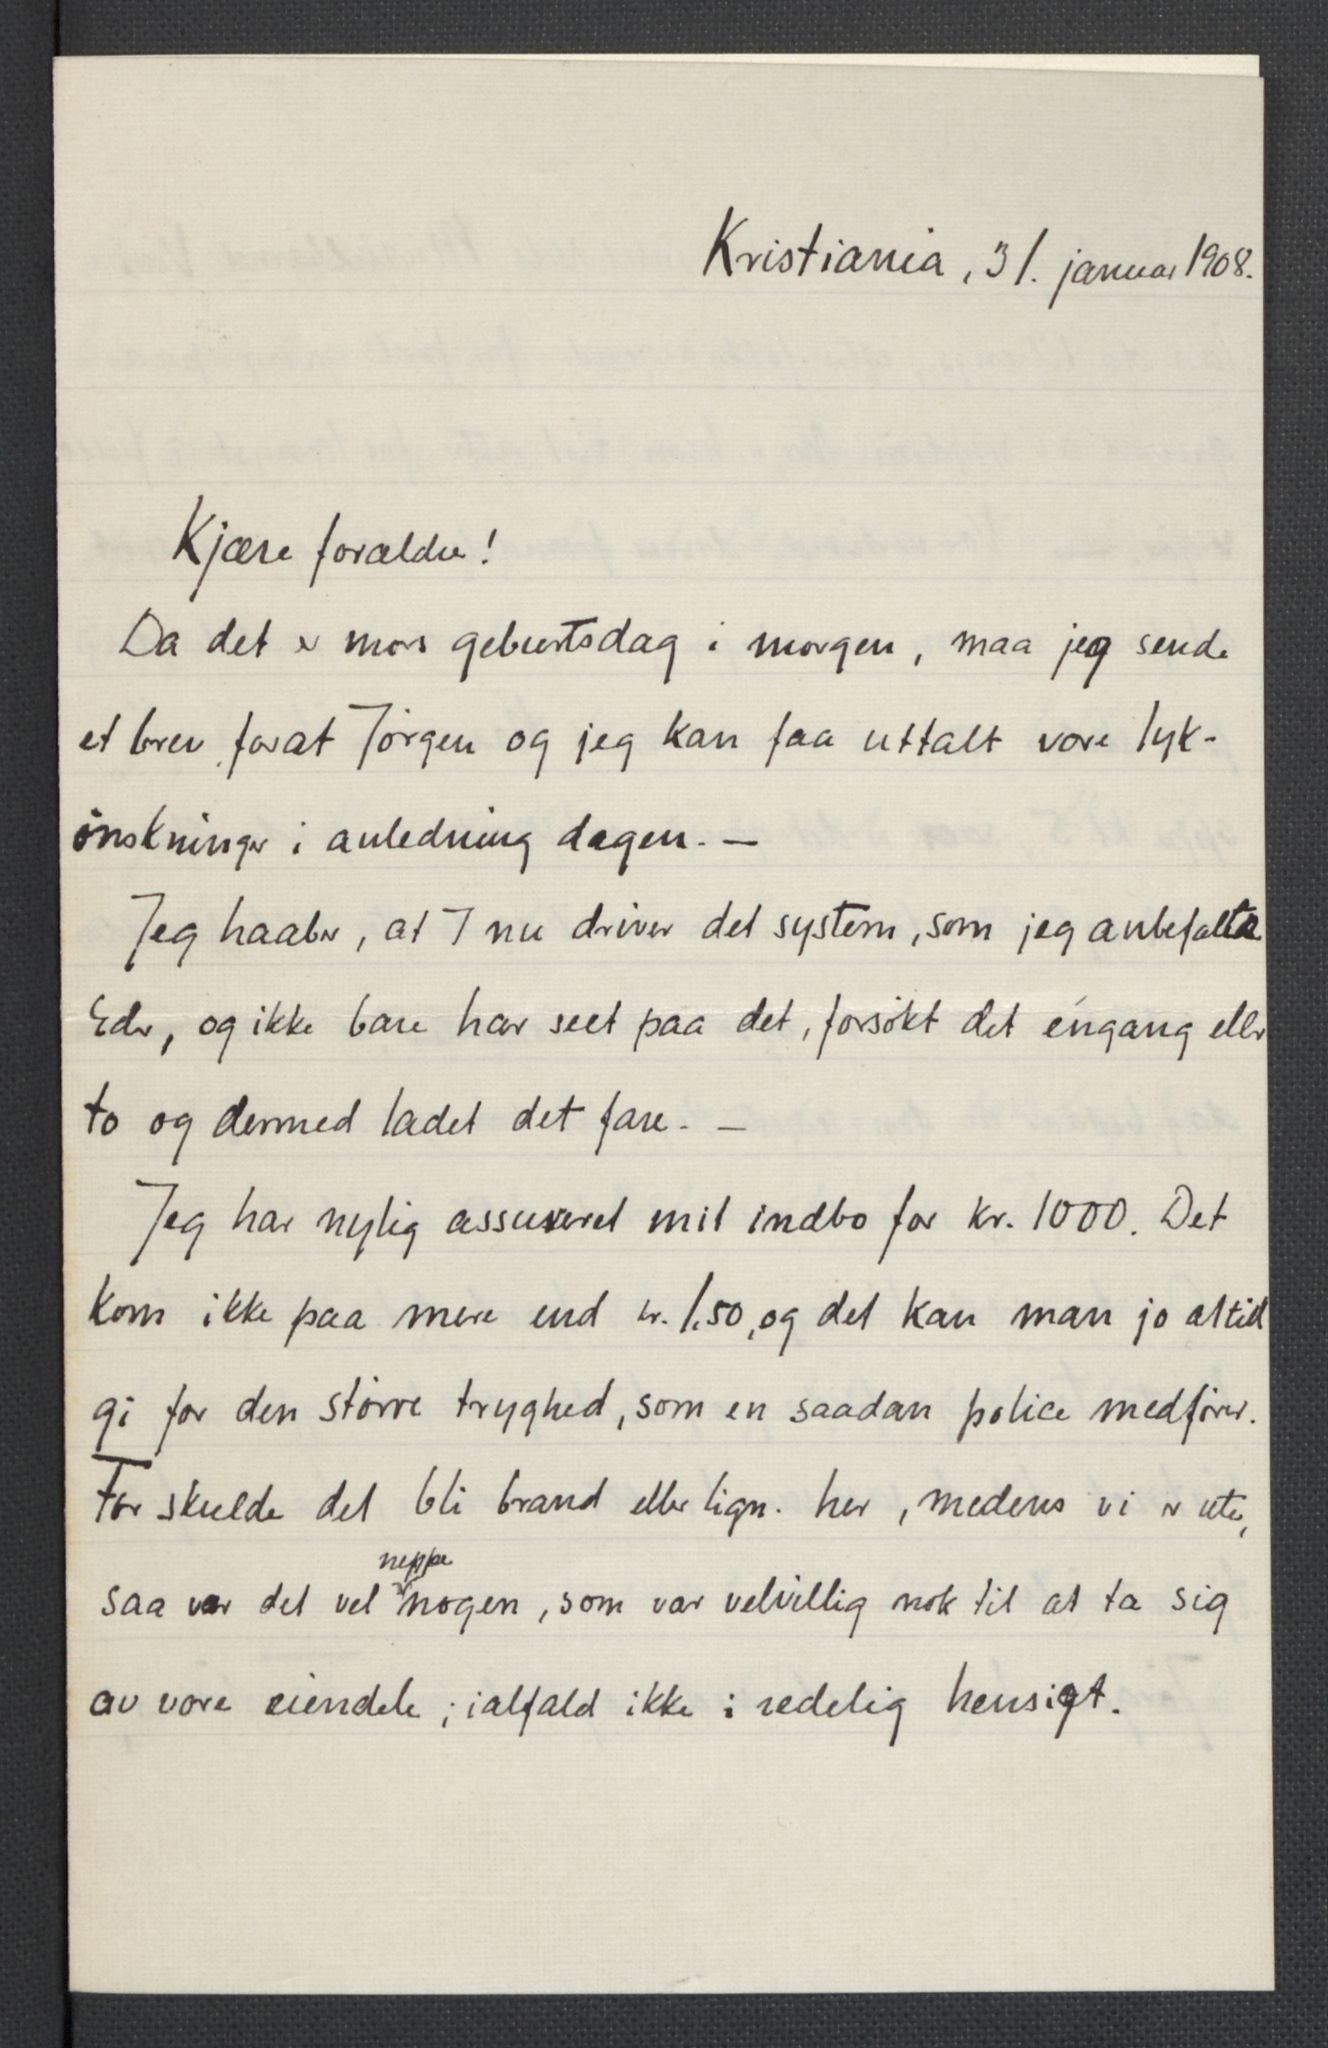 Kristiania, 31. januar 1908.
Kjære forældre!
Da det er mors geburtsdag i morgen, maa jeg sende
et brev forat Jørgen og jeg kan faa uttalt vore lyk-
ønskninger i anledning dagen. —
Jeg haaber, at I nu driver det system, som jeg anbefalte
Eder, og ikke bare har seet paa det, forsøkt det éngang eller
to og dermed ladet det fare. —
Jeg har nylig assureret mit indbo for kr. 1000. Det
kom ikke paa mere end kr. 1,50, og det kan man jo altid
gi for den større tryghed, som en saadan police medfører.
For skulde det bli brand eller lign. her, medens vi er ute,
saa var det vel neppe nogen, som var velvillig nok til at ta sig
av vore eiendele; ialfald ikke i redelig hensigt.